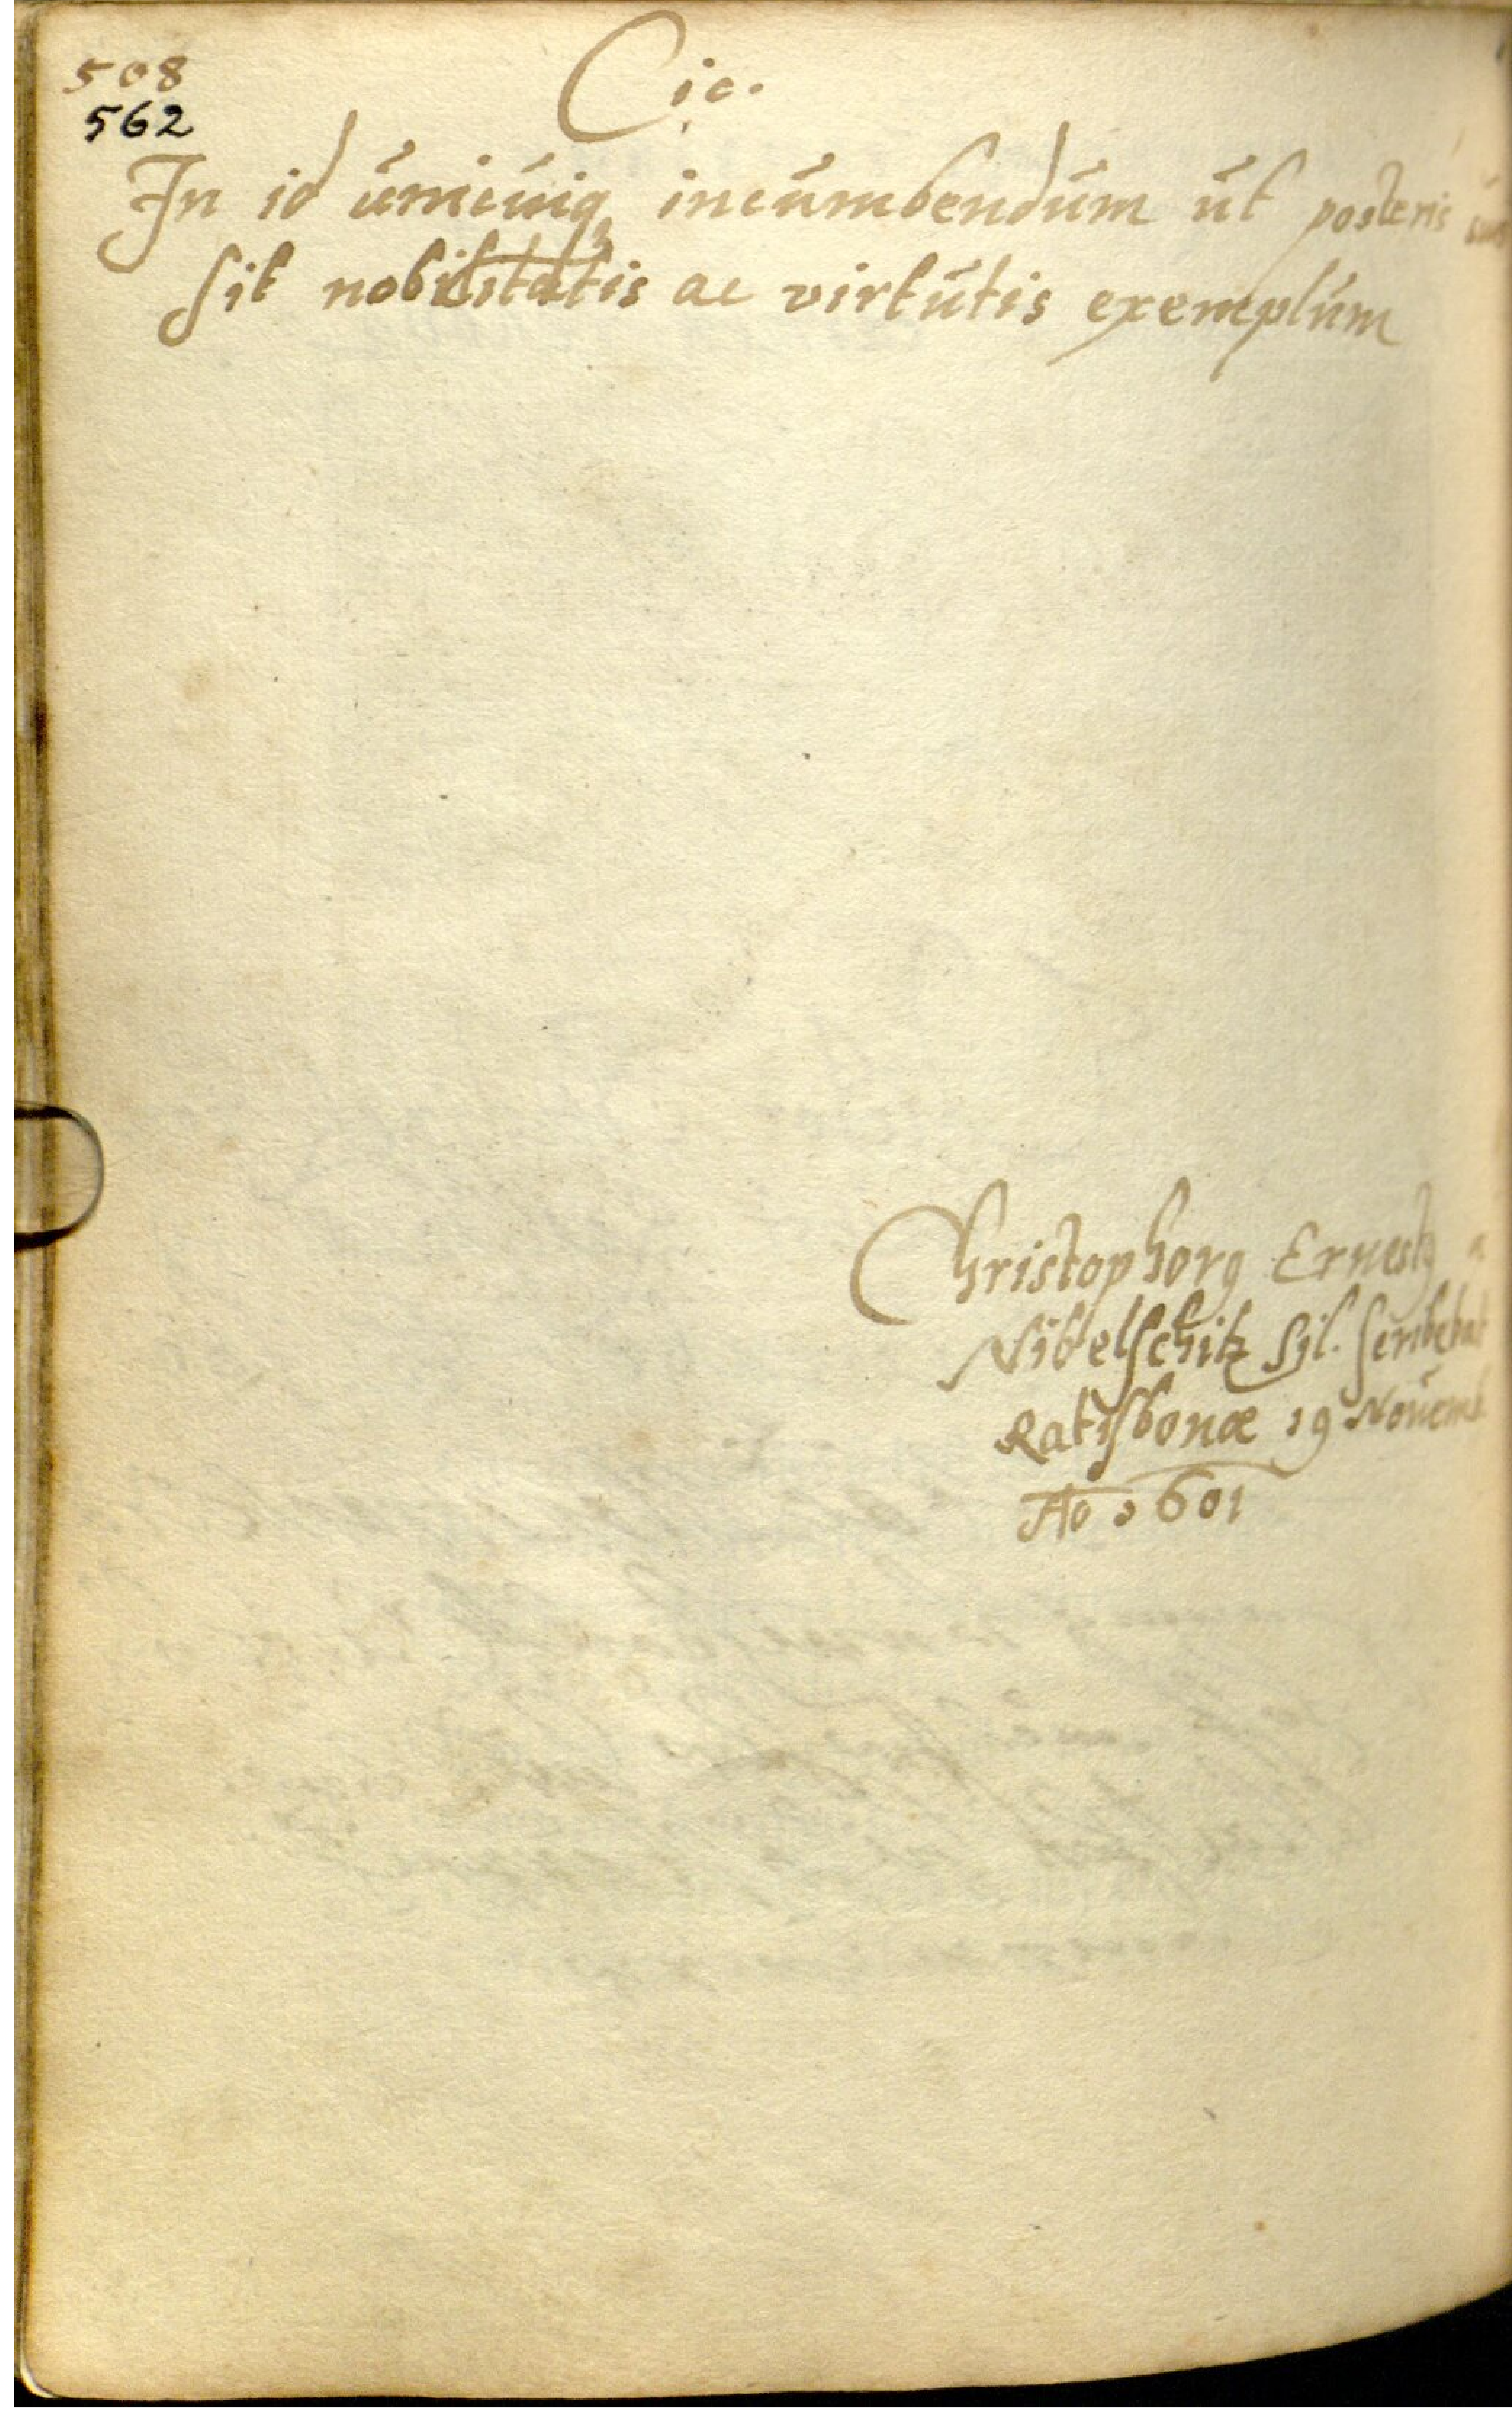 508
562
Cic.
In id unicuiq₃ incumbendum ut posteris
sit nobilitatis ac virtutis exemplum
Christophorꝰ Ernestꝰ a
Nibelschitz Sil. scribebat
Ratisbonæ 19 Novemb
Ao 1601